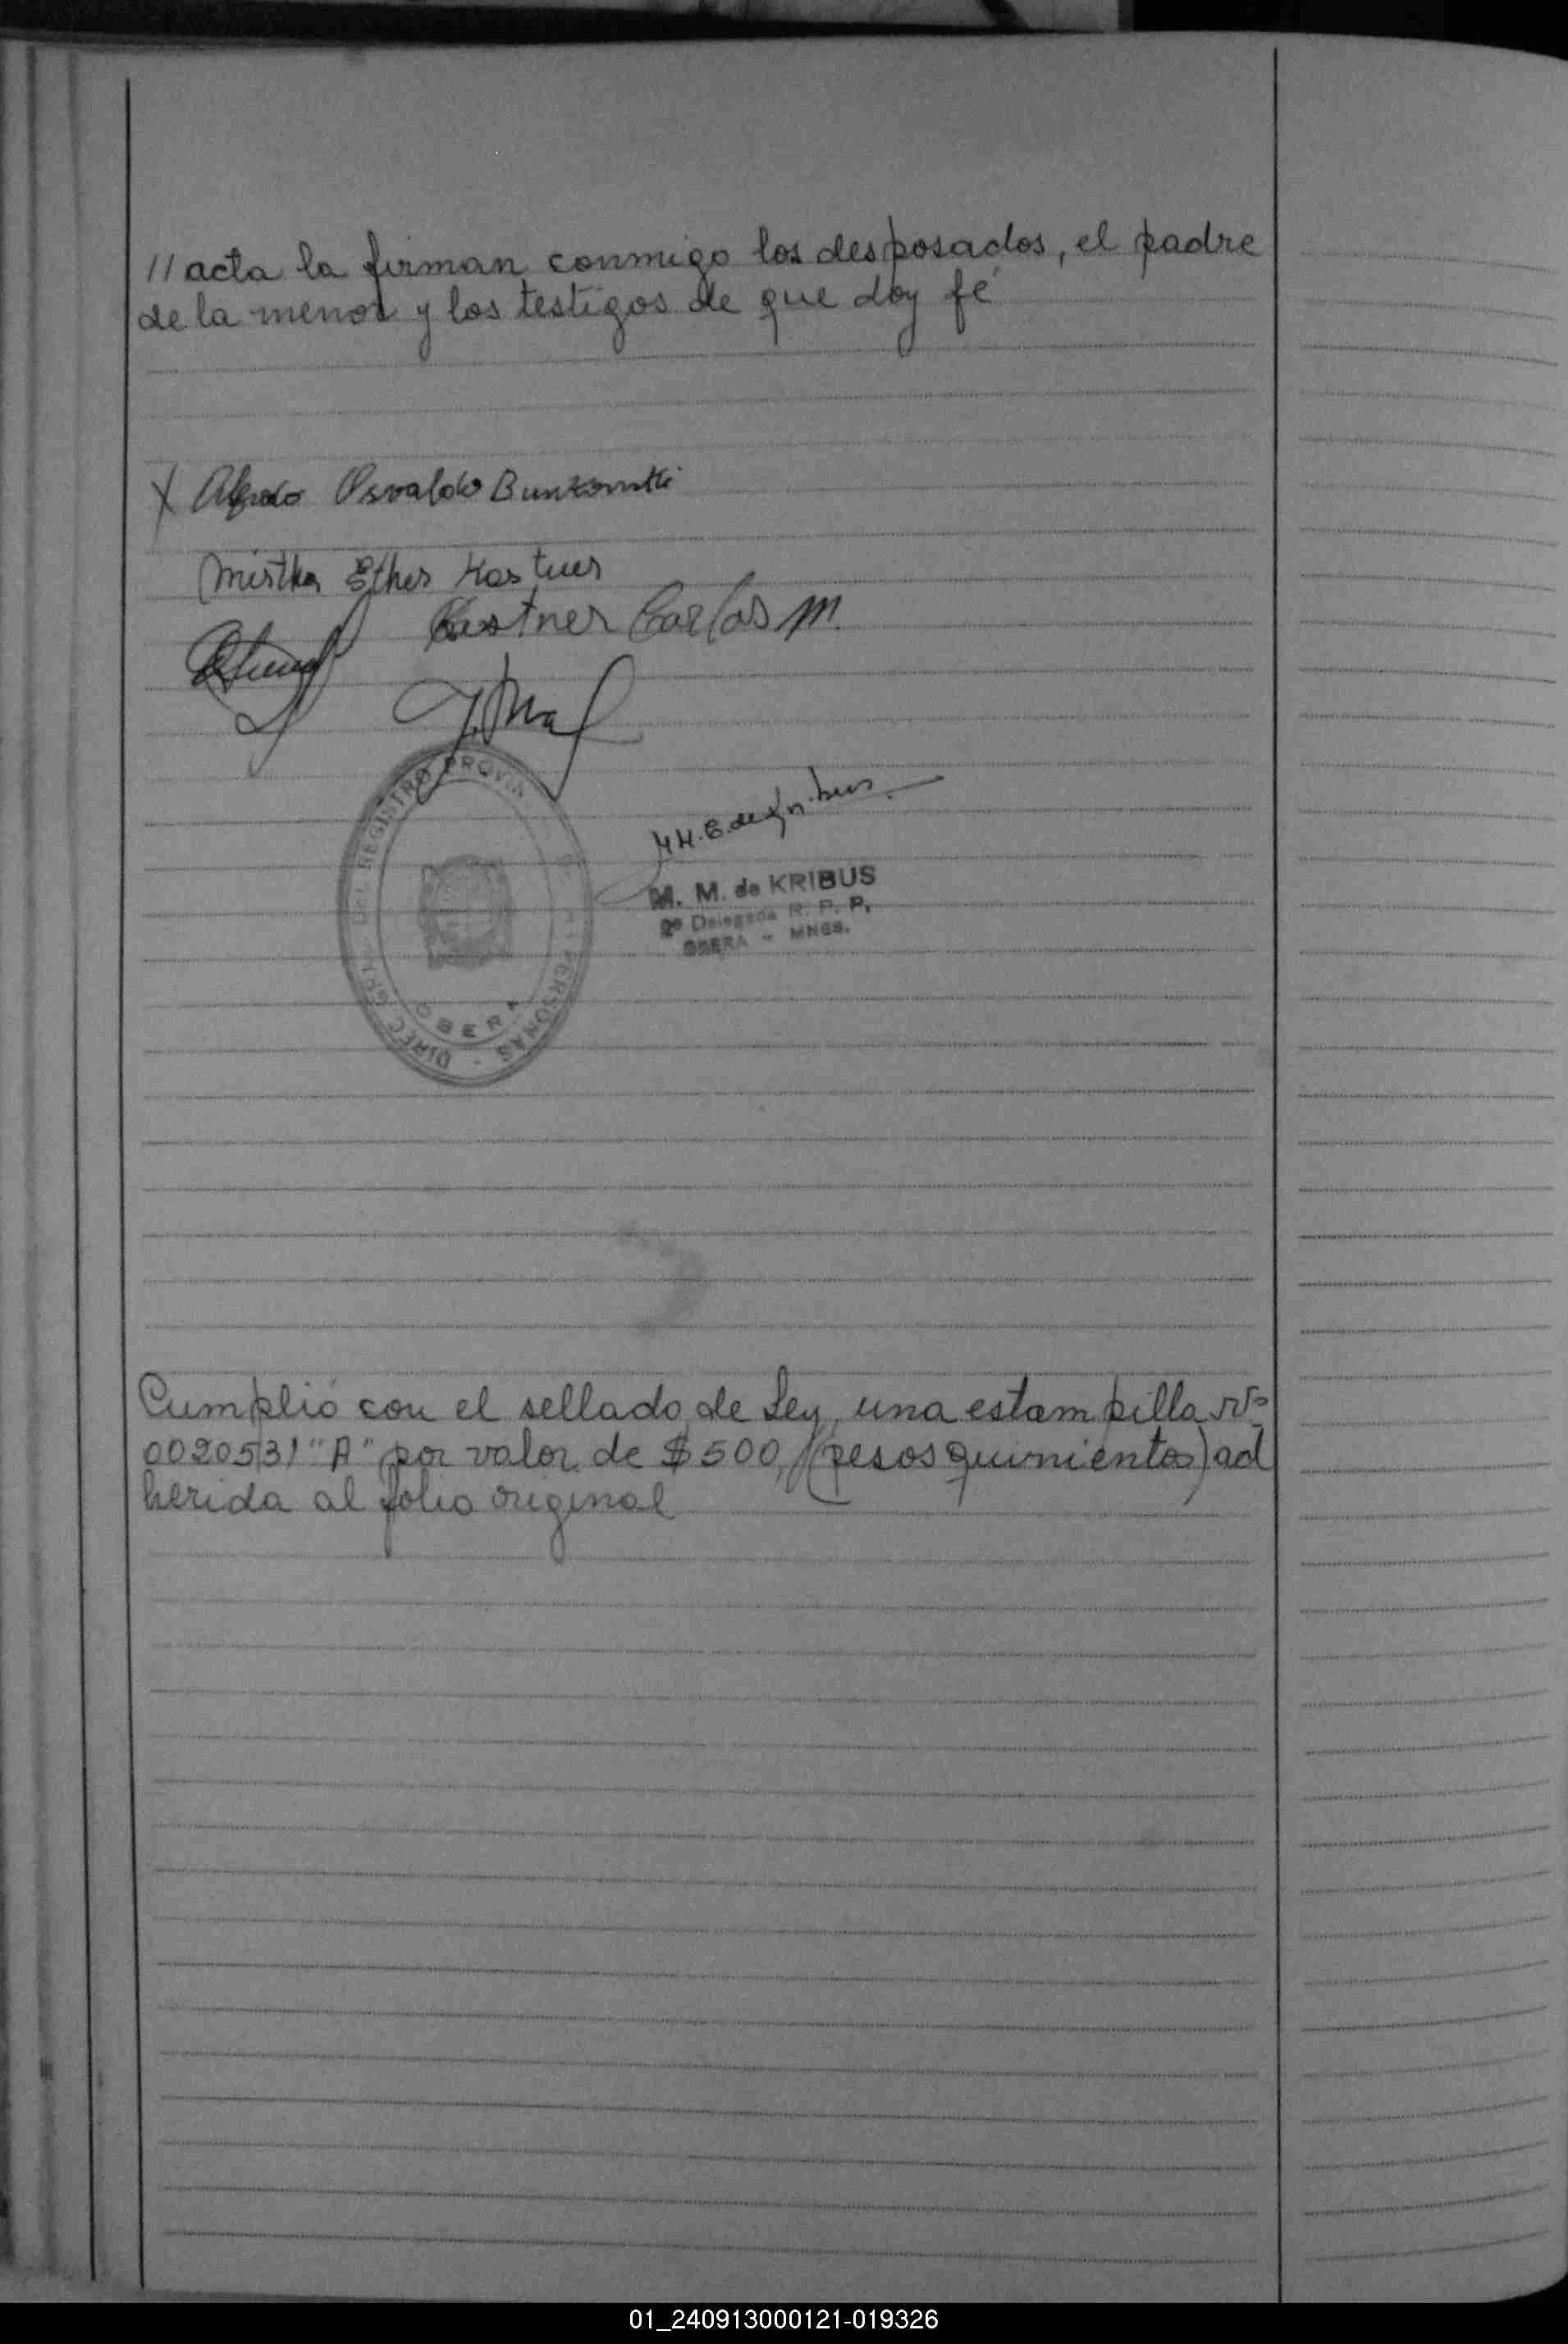 // acta la firman conmigo los desposados, el padre
de la menor y los testigos de que doy fé
X Osvaldo
Mirtha Esther Kastner
Kastner Carlos M.
DIREC. GRAL. DEL REGISTRO PROVIN PERSONAS -
OBERA
M. M. de KRIBUS
2º Delegada R. P. P.
OBERA - MNES.
Cumplió con el sellado de Ley, una estampilla Nº
0020531 "A" por valor de $ 500, (pesos quinientos) ad
herida al folio original
01_240913000121-019326